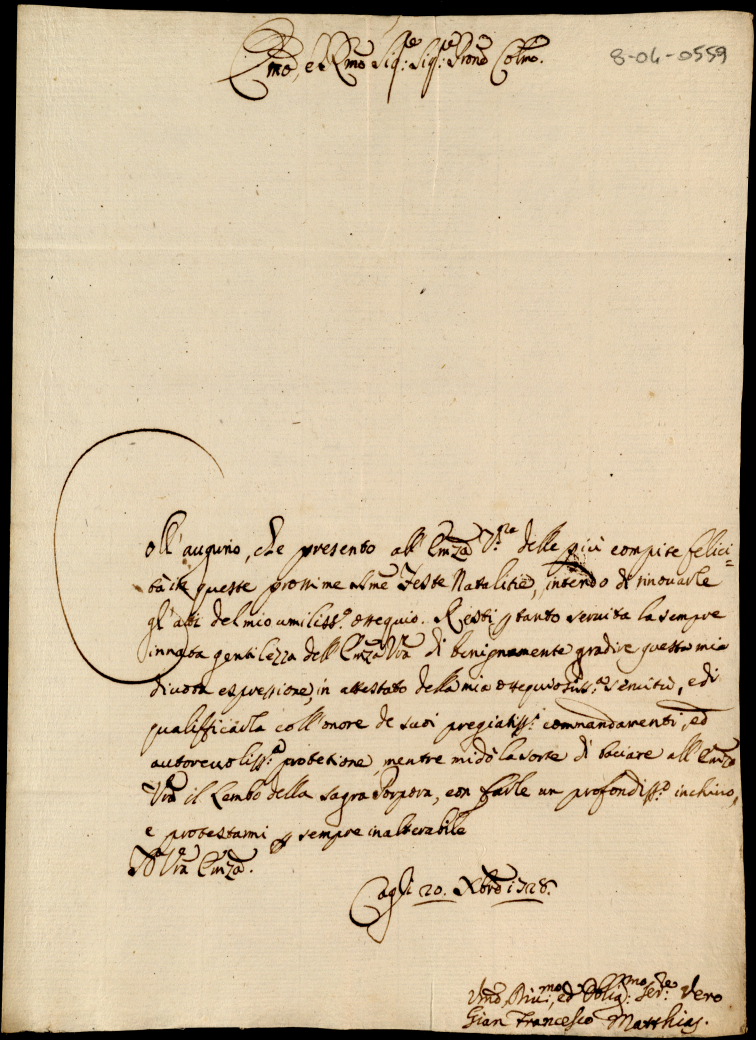 8-04-0559
Emo, e Rmo Sig:re Sig:re Prone Colmo.
Coll'augurio, che presento all'Emza V.ra delle più compite felici=
tà in queste prossime alme Feste Natalitie, intendo di rinovarle
gl'atti del mio umiliss.o ossequio. Resti p tanto servita la sempre
innata gentilezza dell'Emza Vra di benignamente gradire questa mia
divota espressione, in attestato della mia ossequiosiss.a servitù, e di
qualifficarla coll'onore de suoi pregiatiss.i commandamenti, ed
autorevoliss.a protetione, mentre mi dò la sorte di baciare all'Emza
Vra il Lembo della Sagra Porpora, con farle un profondiss.o inchino,
e protestarmi p sempre inalterabile
D Vra Emza.
Cagli 20. Xbre 1728.
Umo, Divmo, ed Oblig:mo Ser:re Vero
Gian Francesco Matthias.